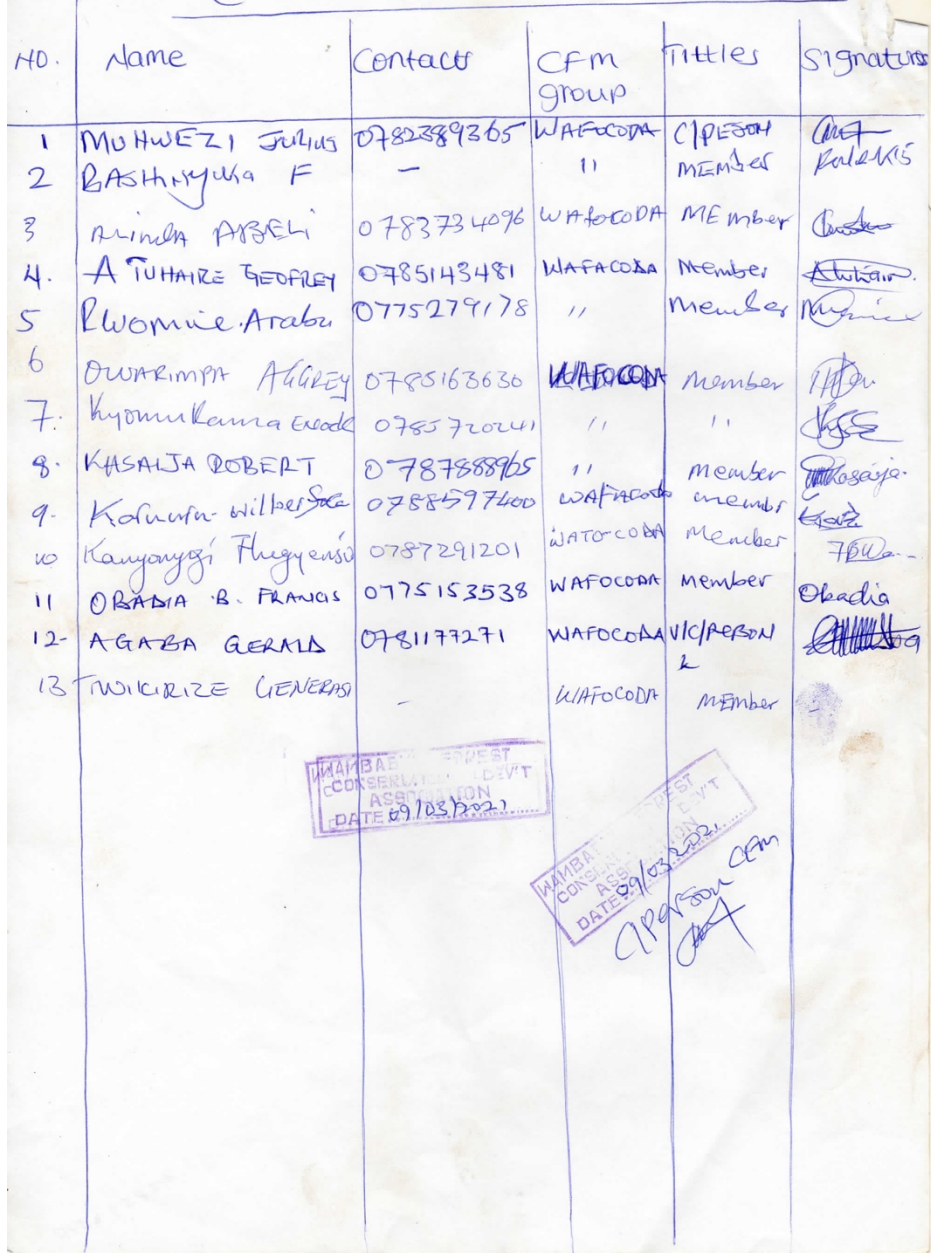 NO. Name Contacts CFM group Tittles Signatures
1 MUHWEZI JULIUS 0782389365 WAFOCODA C/PESON
2 F - " MEMBER
3 ABELI 0783734096 WAFOCODA MEMBER
4. ATUHAIRE GEOFREY 0785143481 WAFACODA Member
5 Rwomire. Arabu 0775279178 " Member
6 OWARIMPA AGGREY 0785163630 WAFOCODA member
7. Kyomukama Enock 0785720241 " "
8. KASAIJA ROBERT 0787888965 " member Kosaija.
9. 0788597400 membr
10 Kanyonyozi 0787291201 WATO-CODA Member
11 OBADIA B. FRANCIS 0775153538 WAFOCODA Member Obadia
12- AGABA GERALD 0781177271 WAFOCODA V/C/PERSON
13 TWIKIRIZE GENERASI - WAFOCODA MEMBER
WAMBAB FOREST
CONSERVATION DEV'T
ASSOCIATION
DATE 09/03/2021
WAMBA FOREST
CONSERV DEV'T
ASSOCIATION
DATE 09/03/2021
C/Person CFM